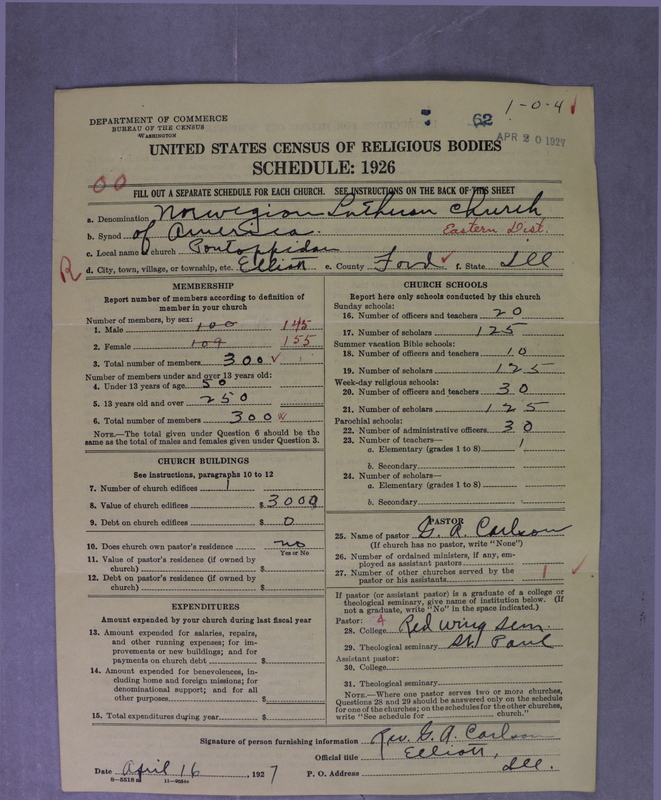 1-0-4
62
APR 20 1927
DEPARTMENT OF COMMERCE
BUREAU OF THE CENSUS
WASHINGTON
UNITED STATES CENSUS OF RELIGIOUS BODIES
SCHEDULE: 1926
00
FILL OUT A SEPARATE SCHEDULE FOR EACH CHURCH. SEE INSTRUCTIONS ON THE BACK OF THIS SHEET
a. Denomination Norwegian Lutheran Church
b. Synod of America. Eastern Dist.
c. Local name of church Pontoppidan
R d. City, town, village, or township, etc. Elliott e. County Ford f. State Ill
MEMBERSHIP
Report number of members according to definition of
member in your church
Number of members, by sex:
1. Male 100 145
2. Female 109 155
3. Total number of members 300
Number of members under and over 13 years old:
4. Under 13 years of age 50
5. 13 years old and over 250
6. Total number of members 300
NOTE.—The total given under Question 6 should be the
same as the total of males and females given under Question 3.
CHURCH BUILDINGS
See instructions, paragraphs 10 to 12
7. Number of church edifices 1
8. Value of church edifices $ 3000
9. Debt on church edifices $ 0
10. Does church own pastor's residence no
Yes or No
11. Value of pastor's residence (if owned by
church) $
12. Debt on pastor's residence (if owned by
church) $
EXPENDITURES
Amount expended by your church during last fiscal year
13. Amount expended for salaries, repairs,
and other running expenses; for im-
provements or new buildings; and for
payments on church debt $
14. Amount expended for benevolences, in-
cluding home and foreign missions; for
denominational support; and for all
other purposes $
15. Total expenditures during year $
CHURCH SCHOOLS
Report here only schools conducted by this church
Sunday schools:
16. Number of officers and teachers 20
17. Number of scholars 125
Summer vacation Bible schools:
18. Number of officers and teachers 10
19. Number of scholars 125
Week-day religious schools:
20. Number of officers and teachers 30
21. Number of scholars 125
Parochial schools:
22. Number of administrative officers 30
23. Number of teachers—
a. Elementary (grades 1 to 8) 1
b. Secondary
24. Number of scholars—
a. Elementary (grades 1 to 8)
b. Secondary
PASTOR
25. Name of pastor G. A. Carlson
(If church has no pastor, write "None")
26. Number of ordained ministers, if any, em-
ployed as assistant pastors
27. Number of other churches served by the
pastor or his assistants 1
If pastor (or assistant pastor) is a graduate of a college or
theological seminary, give name of institution below. (If
not a graduate, write "No" in the space indicated.)
Pastor: 4
28. College Red Wing Sem.
29. Theological seminary St. Paul
Assistant pastor:
30. College
31. Theological seminary
NOTE.—Where one pastor serves two or more churches,
Questions 28 and 29 should be answered only on the schedule
for one of the churches; on the schedules for the other churches,
write "See schedule for church."
Signature of person furnishing information Rev. G. A. Carlson
Official title Elliott,
Date April 16, 1927 P. O. Address Ill.
8-5518